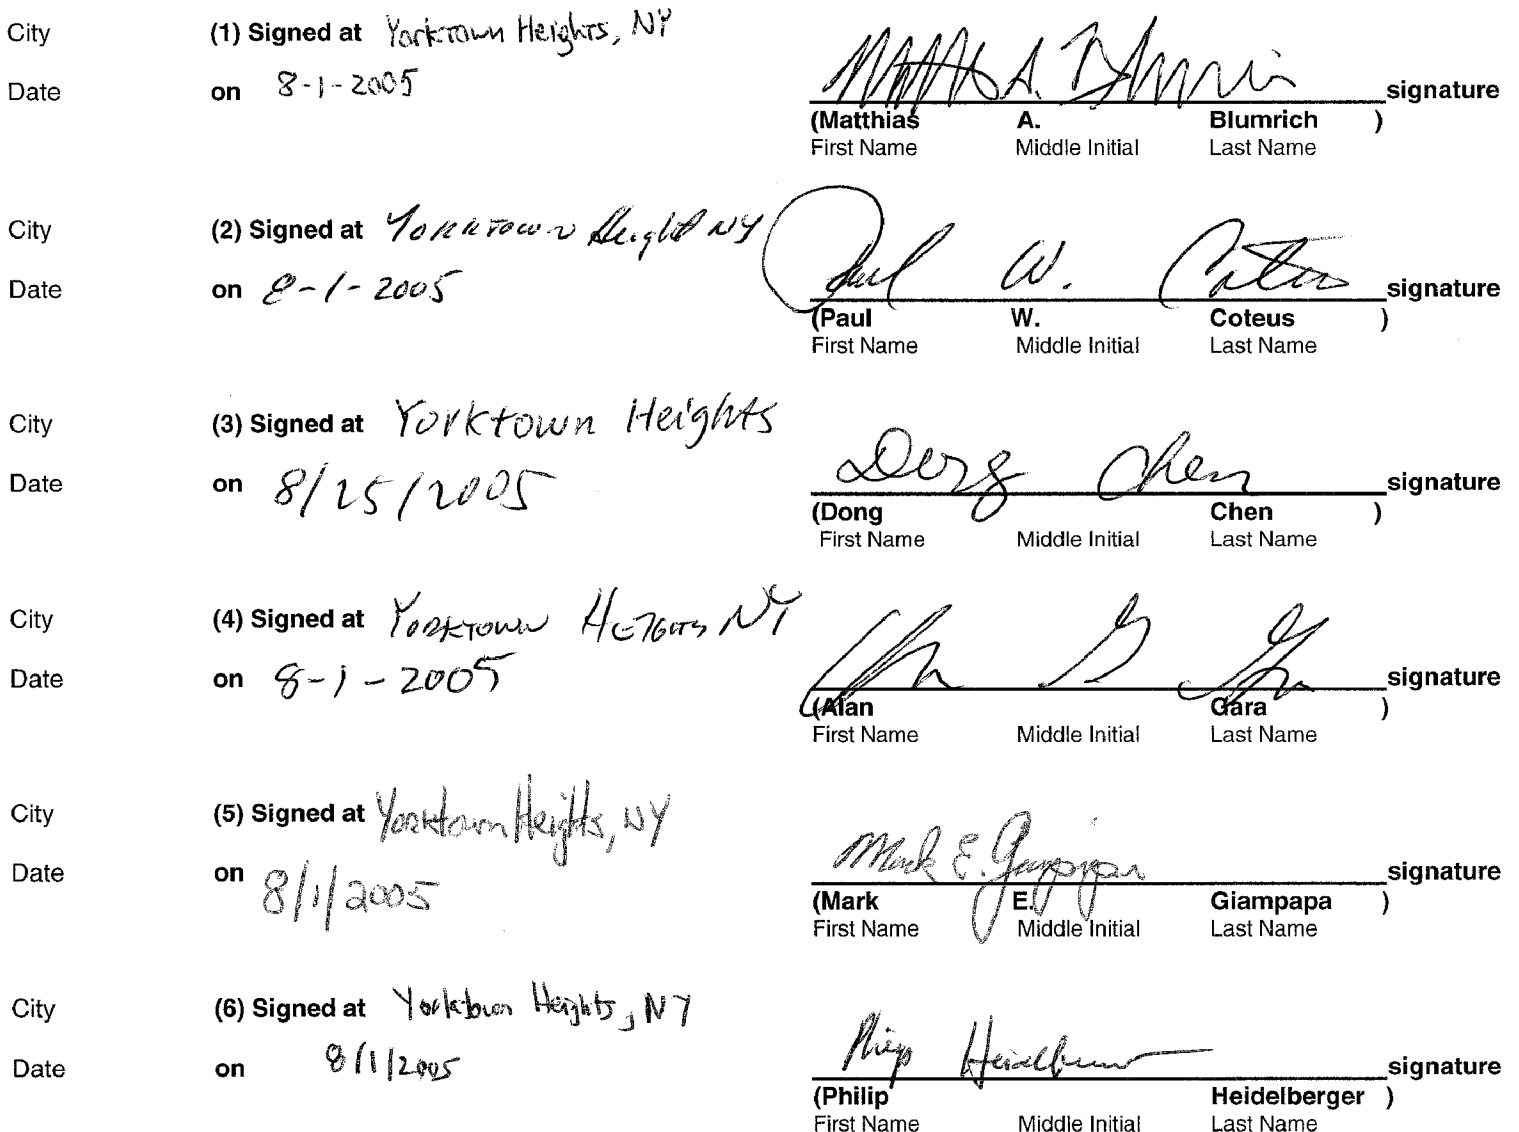 City (1) Signed at Yorktown Heights, NY
Date on 8-1-2005 Matthias A. Blumrich signature
(Matthias A. Blumrich )
First Name Middle Initial Last Name
City (2) Signed at Yorktown Heights NY
Date on 8-1-2005 Paul W. Coteus signature
(Paul W. Coteus )
First Name Middle Initial Last Name
City (3) Signed at Yorktown Heights
Date on 8/25/2005 Dong Chen signature
(Dong Chen )
First Name Middle Initial Last Name
City (4) Signed at Yorktown Heights NY
Date on 8-1-2005 signature
(Alan Gara )
First Name Middle Initial Last Name
City (5) Signed at Yorktown Heights, NY
Date on 8/1/2005 Mark E. Giampapa signature
(Mark E. Giampapa )
First Name Middle Initial Last Name
City (6) Signed at Yorktown Heights, NY
Date on 8/1/2005 Philip Heidelberger signature
(Philip Heidelberger )
First Name Middle Initial Last Name